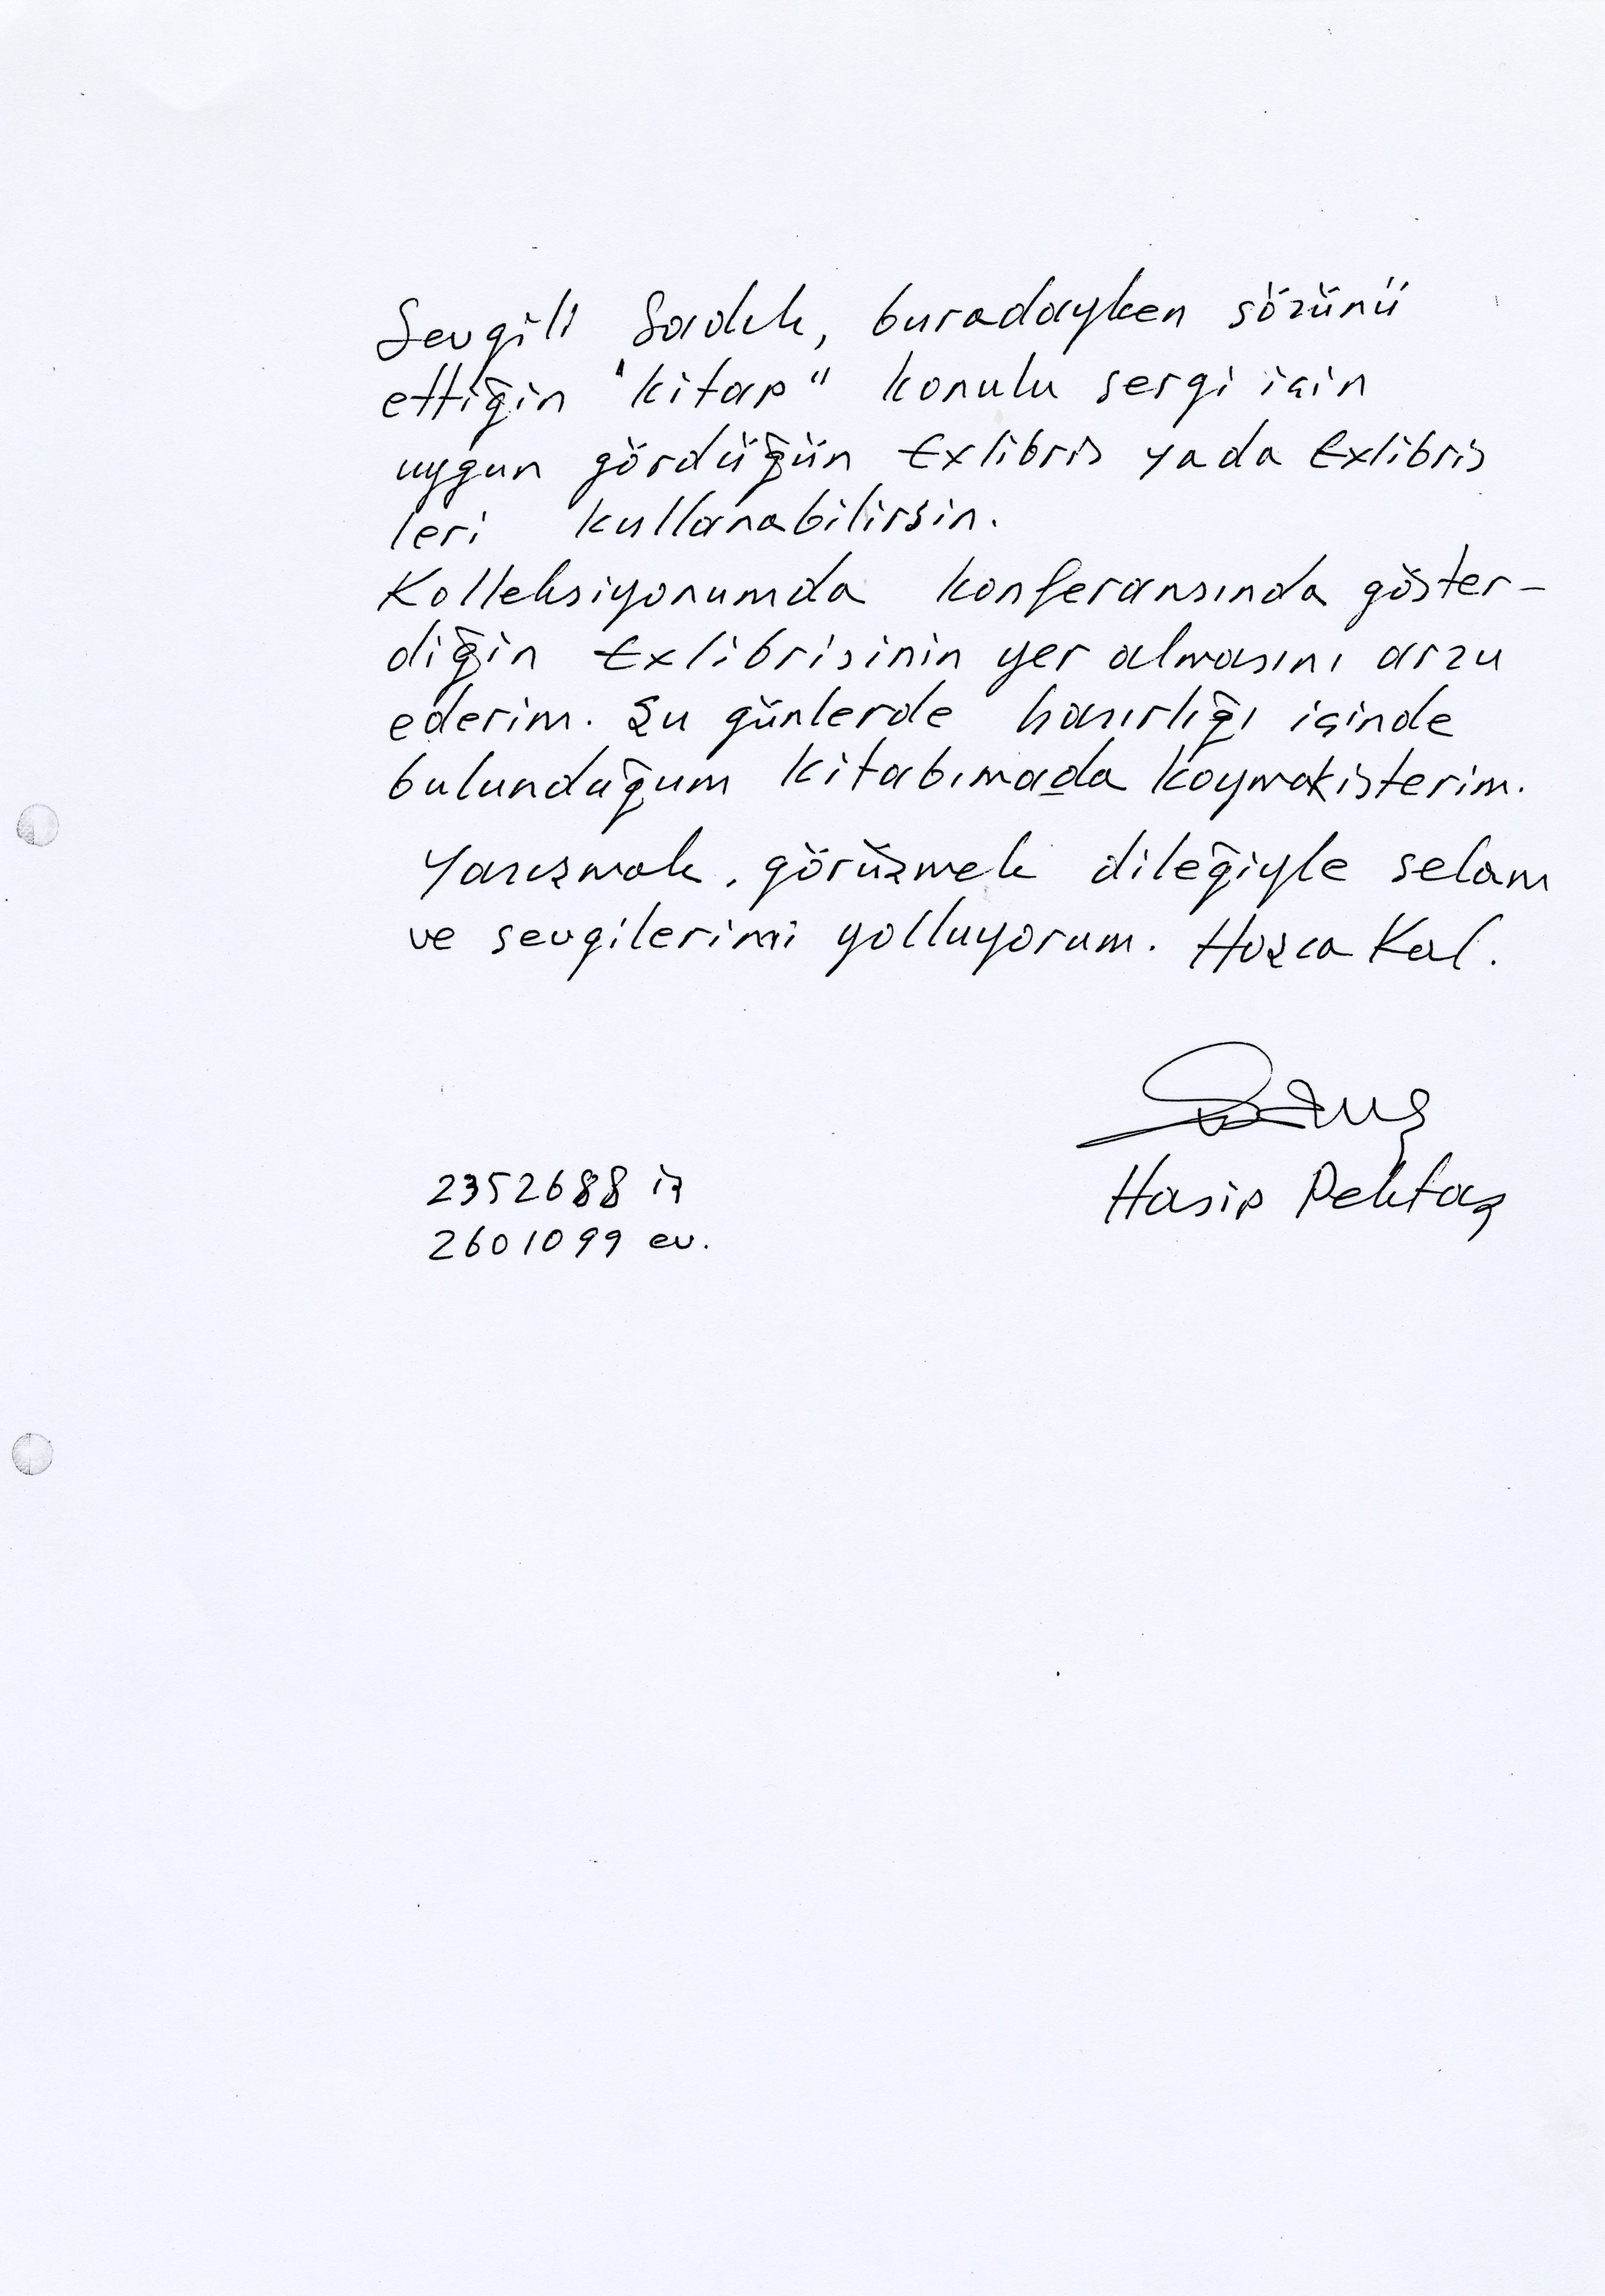 Sevgili Sadık, buradayken sözünü
ettiğin "kitap" konulu sergi için
uygun gördüğün Exlibris yada Exlibris
leri kullanabilirsin.
Kolleksiyonumda konferansında göster-
diğin Exlibrisinin yer almasını arzu
ederim. Şu günlerde hazırlığı içinde
bulunduğum kitabımada koymakisterim.
Yazışmak, görüşmek dileğiyle selam
ve sevgilerimi yolluyorum. Hoşca Kal.
2352688 iş
Hasip Pektaş
2601099 ev.